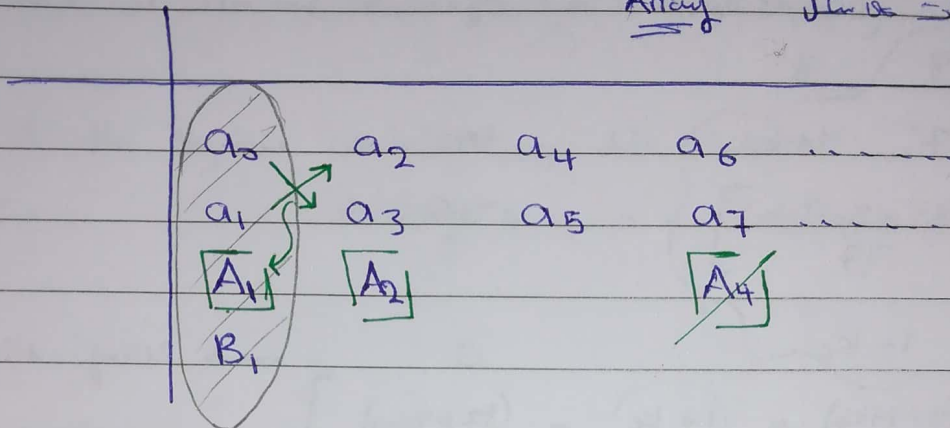 Array
a₀ a₂ a₄ a₆ ........
a₁ a₃ a₅ a₇ ........
A₁ A₂ A₄
B₁